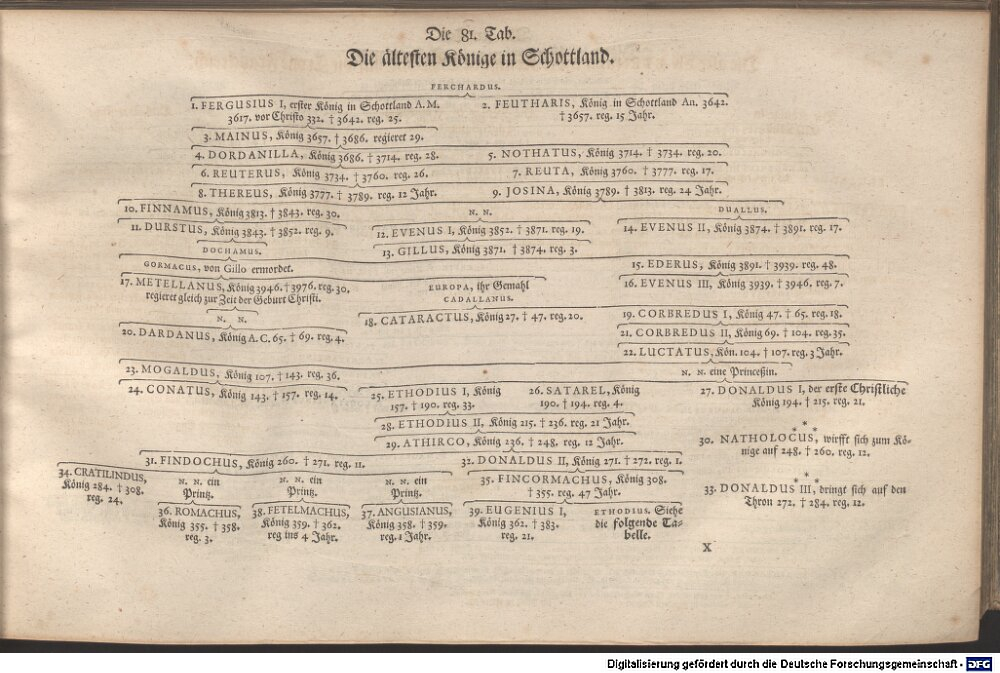 Die 81. Tab.
Die ältesten Könige in Schottland.
FERCHARDUS.
1. FERGUSIUS I, erster König in Schottland A. M.
3617. vor Christo 332. † 3642. reg. 25.
2. FEUTHARIS, König in Schottland An. 3642.
† 3657. reg. 15 Jahr.
3. MAINUS, König 3657. † 3686. regieret 29.
4. DORDANILLA, König 3686. † 3714. reg. 28.
5. NOTHATUS, König 3714. † 3734. reg. 20.
6. REUTERUS, König 3734. † 3760. reg. 26.
7. REUTA, König 3760. † 3777. reg. 17.
8. THEREUS, König 3777. † 3789. reg. 12 Jahr.
9. JOSINA, König 3789. † 3813. reg. 24 Jahr.
10. FINNAMUS, König 3813. † 3843. reg. 30.
N. N.
DUALLUS.
11. DURSTUS, König 3843. † 3852. reg. 9.
12. EVENUS I, König 3852. † 3871. reg. 19.
14. EVENUS II, König 3874. † 3891. reg. 17.
DOCHAMUS.
13. GILLUS, König 3871. † 3874. reg. 3.
GORMACUS, von Gillo ermordet.
15. EDERUS, König 3891. † 3939. reg. 48.
17. METELLANUS, König 3946. † 3976. reg. 30.
regieret gleich zur Zeit der Geburt Christi.
EUROPA, ihr Gemahl
CADALLANUS.
16. EVENUS III, König 3939. † 3946. reg. 7.
N. N.
18. CATARACTUS, König 27. † 47. reg. 20.
19. CORBREDUS I, König 47. † 65. reg. 18.
20. DARDANUS, König A. C. 65. † 69. reg. 4.
21. CORBREDUS II, König 69. † 104. reg. 35.
22. LUCTATUS, Kön. 104. † 107. reg. 3 Jahr.
23. MOGALDUS, König 107. † 143. reg. 36.
N. N. eine Princeßin.
24. CONATUS, König 143. † 157. reg. 14.
25. ETHODIUS I, König
157. † 190. reg. 33.
26. SATAREL, König
190. † 194. reg. 4.
27. DONALDUS I, der erste Christliche
König 194. † 215. reg. 21.
28. ETHODIUS II, König 215. † 236. reg. 21 Jahr.
29. ATHIRCO, König 236. † 248. reg. 12 Jahr.
* * *
30. NATHOLOCUS, wirfft sich zum Kö-
nige auf 248. † 260. reg. 12.
31. FINDOCHUS, König 260. † 271. reg. 11.
32. DONALDUS II, König 271. † 272. reg. 1.
* * *
33. DONALDUS III, dringt sich auf den
Thron 272. † 284. reg. 12.
34. CRATILINDUS,
König 284. † 308.
reg. 24.
N. N. ein
Printz.
N. N. ein
Printz.
N. N. ein
Printz.
35. FINCORMACHUS, König 308.
† 355. reg. 47 Jahr.
36. ROMACHUS,
König 355. † 358.
reg. 3.
38. FETELMACHUS,
König 359. † 362.
reg ins 4 Jahr.
37. ANGUSIANUS,
König 358. † 359.
reg. 1 Jahr.
39. EUGENIUS I,
König 362. † 383.
reg. 21.
ETHODIUS. Siehe
die folgende Ta-
belle.
X
Digitalisierung gefördert durch die Deutsche Forschungsgemeinschaft - DFG